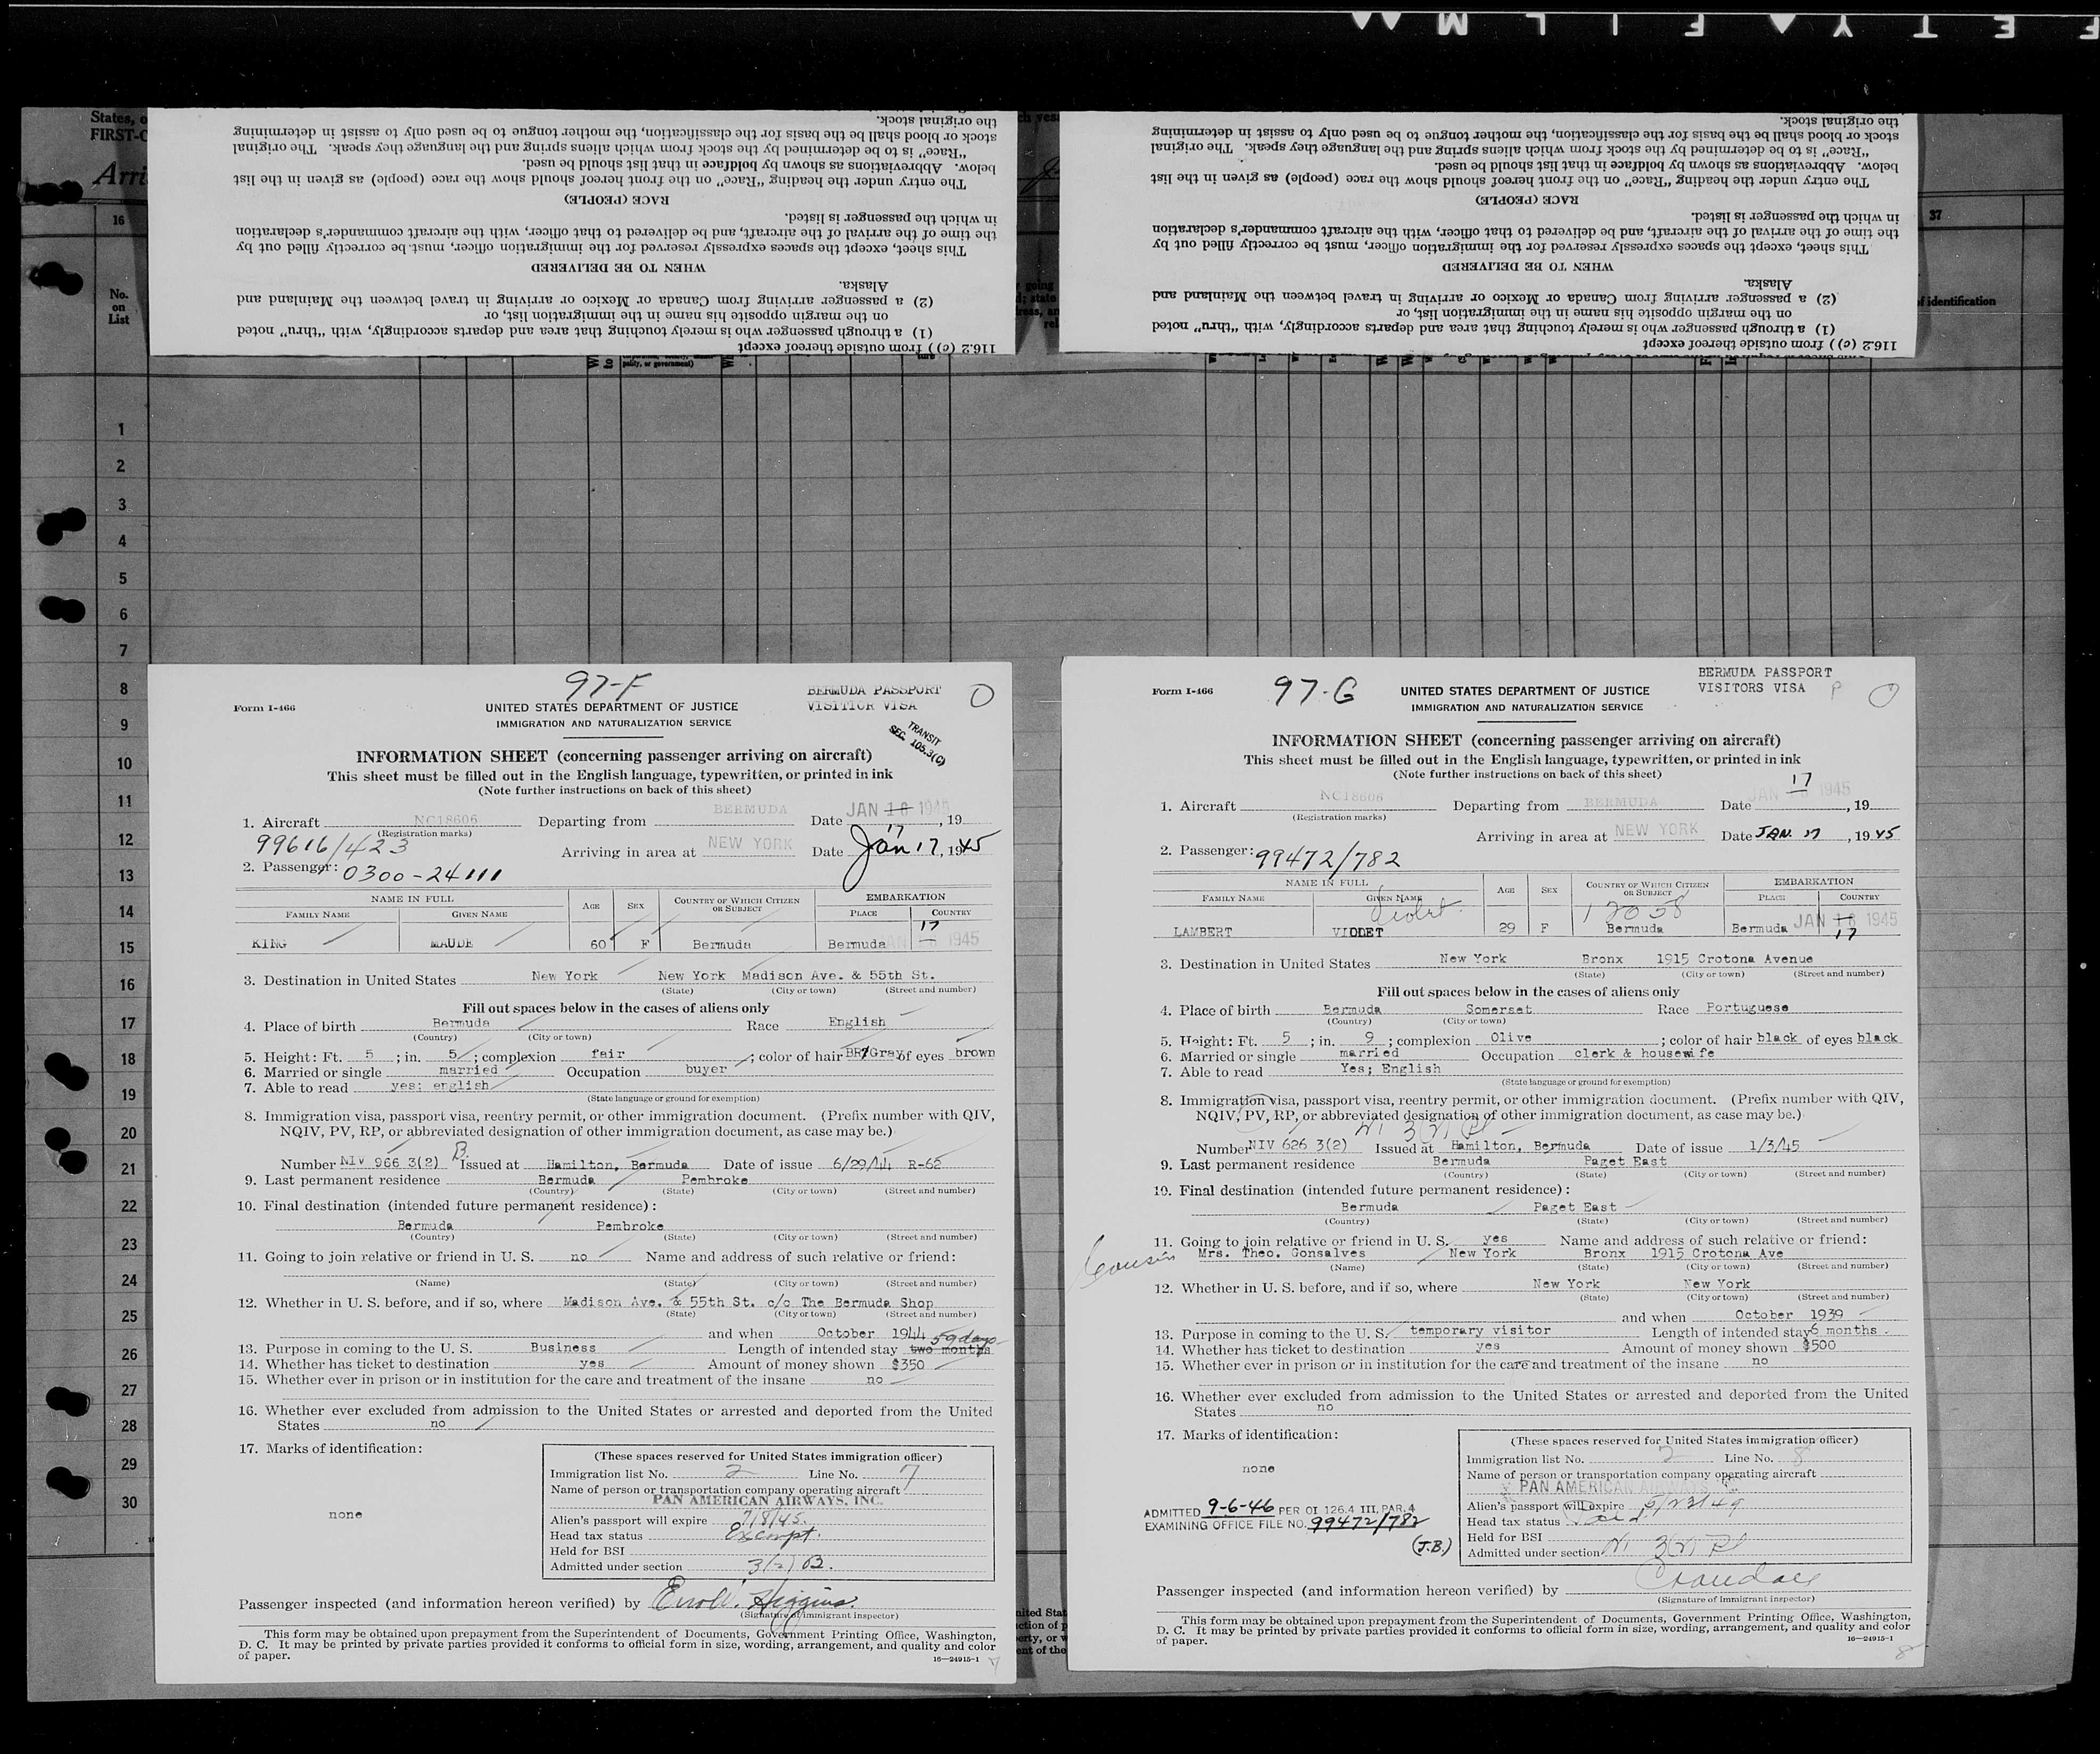 FETY FILM
States, o
FIRST-C
Arri
16
No.
on
List
37
of identification
the original stock.
stock or blood shall be the basis for the classification, the mother tongue to be used only to assist in determining
"Race" is to be determined by the stock from which aliens spring and the language they speak. The original
below. Abbreviations as shown by boldface in that list should be used.
The entry under the heading "Race" on the front hereof should show the race (people) as given in the list
RACE (PEOPLE)
in which the passenger is listed.
the time of the arrival of the aircraft, and be delivered to that officer, with the aircraft commander's declaration
This sheet, except the spaces expressly reserved for the immigration officer, must be correctly filled out by
WHEN TO BE DELIVERED
Alaska.
(2) a passenger arriving from Canada or Mexico or arriving in travel between the Mainland and
on the margin opposite his name in the immigration list, or
(1) a through passenger who is merely touching that area and departs accordingly, with "thru" noted
116.2 (c)) from outside thereof except
the original stock.
stock or blood shall be the basis for the classification, the mother tongue to be used only to assist in determining
"Race" is to be determined by the stock from which aliens spring and the language they speak. The original
below. Abbreviations as shown by boldface in that list should be used.
The entry under the heading "Race" on the front hereof should show the race (people) as given in the list
RACE (PEOPLE)
in which the passenger is listed.
the time of the arrival of the aircraft, and be delivered to that officer, with the aircraft commander's declaration
This sheet, except the spaces expressly reserved for the immigration officer, must be correctly filled out by
WHEN TO BE DELIVERED
Alaska.
(2) a passenger arriving from Canada or Mexico or arriving in travel between the Mainland and
on the margin opposite his name in the immigration list, or
(1) a through passenger who is merely touching that area and departs accordingly, with "thru" noted
116.2 (c)) from outside thereof except
1
2
3
4
5
6
7
8
9
10
11
12
13
14
15
16
17
18
19
20
21
22
23
24
25
26
27
28
29
30
97-F
BERMUDA PASSPORT
VISITIOR VISA
O
Form I-466
UNITED STATES DEPARTMENT OF JUSTICE
IMMIGRATION AND NATURALIZATION SERVICE
TRANSIT
SEC. 105.3(C)
INFORMATION SHEET (concerning passenger arriving on aircraft)
This sheet must be filled out in the English language, typewritten, or printed in ink
(Note further instructions on back of this sheet)
1. Aircraft NC18606 Departing from BERMUDA Date JAN 18 1945, 19
(Registration marks) 17
99616/423
Arriving in area at NEW YORK Date Jan 17, 1945
2. Passenger: 0300-24111
NAME IN FULL AGE SEX COUNTRY OF WHICH CITIZEN OR SUBJECT EMBARKATION
FAMILY NAME GIVEN NAME PLACE COUNTRY
17
KING MAUDE 60 F Bermuda Bermuda 1945
3. Destination in United States New York New York Madison Ave. & 55th St.
(State) (City or town) (Street and number)
Fill out spaces below in the cases of aliens only
4. Place of birth Bermuda Race English
(Country) (City or town)
5. Height: Ft. 5 ; in. 5 ; complexion fair ; color of hair BR/Gray of eyes brown
6. Married or single married Occupation buyer
7. Able to read yes; english
(State language or ground for exemption)
8. Immigration visa, passport visa, reentry permit, or other immigration document. (Prefix number with QIV,
NQIV, PV, RP, or abbreviated designation of other immigration document, as case may be.)
Number NIV 966 3(2) B Issued at Hamilton, Bermuda Date of issue 6/29/44 R-62
9. Last permanent residence Bermuda Pembroke
(Country) (State) (City or town) (Street and number)
10. Final destination (intended future permanent residence):
Bermuda Pembroke
(Country) (State) (City or town) (Street and number)
11. Going to join relative or friend in U. S. no Name and address of such relative or friend:
(Name) (State) (City or town) (Street and number)
12. Whether in U. S. before, and if so, where Madison Ave. & 55th St. c/o The Bermuda Shop
(State) (City or town) (Street and number)
and when October 1944
59 days
13. Purpose in coming to the U. S. Business Length of intended stay two months
14. Whether has ticket to destination yes Amount of money shown $350
15. Whether ever in prison or in institution for the care and treatment of the insane no
16. Whether ever excluded from admission to the United States or arrested and deported from the United
States no
17. Marks of identification:
none
(These spaces reserved for United States immigration officer)
Immigration list No. 2 Line No. 7
Name of person or transportation company operating aircraft
PAN AMERICAN AIRWAYS, INC.
Alien's passport will expire 7/8/45.
Head tax status Exempt.
Held for BSI
Admitted under section 3(2) B.
Passenger inspected (and information hereon verified) by Errol W. Higgins.
(Signature of immigrant inspector)
This form may be obtained upon prepayment from the Superintendent of Documents, Government Printing Office, Washington,
D. C. It may be printed by private parties provided it conforms to official form in size, wording, arrangement, and quality and color
of paper.
16—24915-1
7
BERMUDA PASSPORT
VISITORS VISA P
Form I-466
97-G
UNITED STATES DEPARTMENT OF JUSTICE
IMMIGRATION AND NATURALIZATION SERVICE
INFORMATION SHEET (concerning passenger arriving on aircraft)
This sheet must be filled out in the English language, typewritten, or printed in ink
(Note further instructions on back of this sheet)
17
1. Aircraft NC18606 Departing from BERMUDA Date JAN 1945, 19
(Registration marks)
Arriving in area at NEW YORK Date JAN. 17, 1945
2. Passenger: 99472/782
NAME IN FULL AGE SEX COUNTRY OF WHICH CITIZEN OR SUBJECT EMBARKATION
FAMILY NAME GIVEN NAME PLACE COUNTRY
Violet
LAMBERT VIOLET 29 F Bermuda Bermuda JAN 18 1945
17
3. Destination in United States New York Bronx 1915 Crotona Avenue
(State) (City or town) (Street and number)
Fill out spaces below in the cases of aliens only
4. Place of birth Bermuda Somerset Race Portuguese
(Country) (City or town)
5. Height: Ft. 5 ; in. 9 ; complexion Olive ; color of hair black of eyes black
6. Married or single married Occupation clerk & housewife
7. Able to read Yes; English
(State language or ground for exemption)
8. Immigration visa, passport visa, reentry permit, or other immigration document. (Prefix number with QIV,
NQIV, PV, RP, or abbreviated designation of other immigration document, as case may be.)
Number NIV 626 3(2) Issued at Hamilton, Bermuda Date of issue 1/3/45
9. Last permanent residence Bermuda Paget East
(Country) (State) (City or town) (Street and number)
10. Final destination (intended future permanent residence):
Bermuda Paget East
(Country) (State) (City or town) (Street and number)
11. Going to join relative or friend in U. S. yes Name and address of such relative or friend:
Cousin Mrs. Theo. Gonsalves New York Bronx 1915 Crotona Ave
(Name) (State) (City or town) (Street and number)
12. Whether in U. S. before, and if so, where New York New York
(State) (City or town) (Street and number)
and when October 1939
13. Purpose in coming to the U. S. temporary visitor Length of intended stay 6 months
14. Whether has ticket to destination yes Amount of money shown $500
15. Whether ever in prison or in institution for the care and treatment of the insane no
16. Whether ever excluded from admission to the United States or arrested and deported from the United
States no
17. Marks of identification:
none
ADMITTED 9-6-46 PER OI 126.4 III, PAR. 4
EXAMINING OFFICE FILE NO. 99472/782
(J.B.)
(These spaces reserved for United States immigration officer)
Immigration list No. 2 Line No. 8
Name of person or transportation company operating aircraft
PAN AMERICAN AIRWAYS
Alien's passport will expire 5/23/49
Head tax status Paid
Held for BSI
Admitted under section 3(2) Pl
Passenger inspected (and information hereon verified) by Crandall
(Signature of immigrant inspector)
This form may be obtained upon prepayment from the Superintendent of Documents, Government Printing Office, Washington,
D. C. It may be printed by private parties provided it conforms to official form in size, wording, arrangement, and quality and color
of paper.
16—24915-1
8